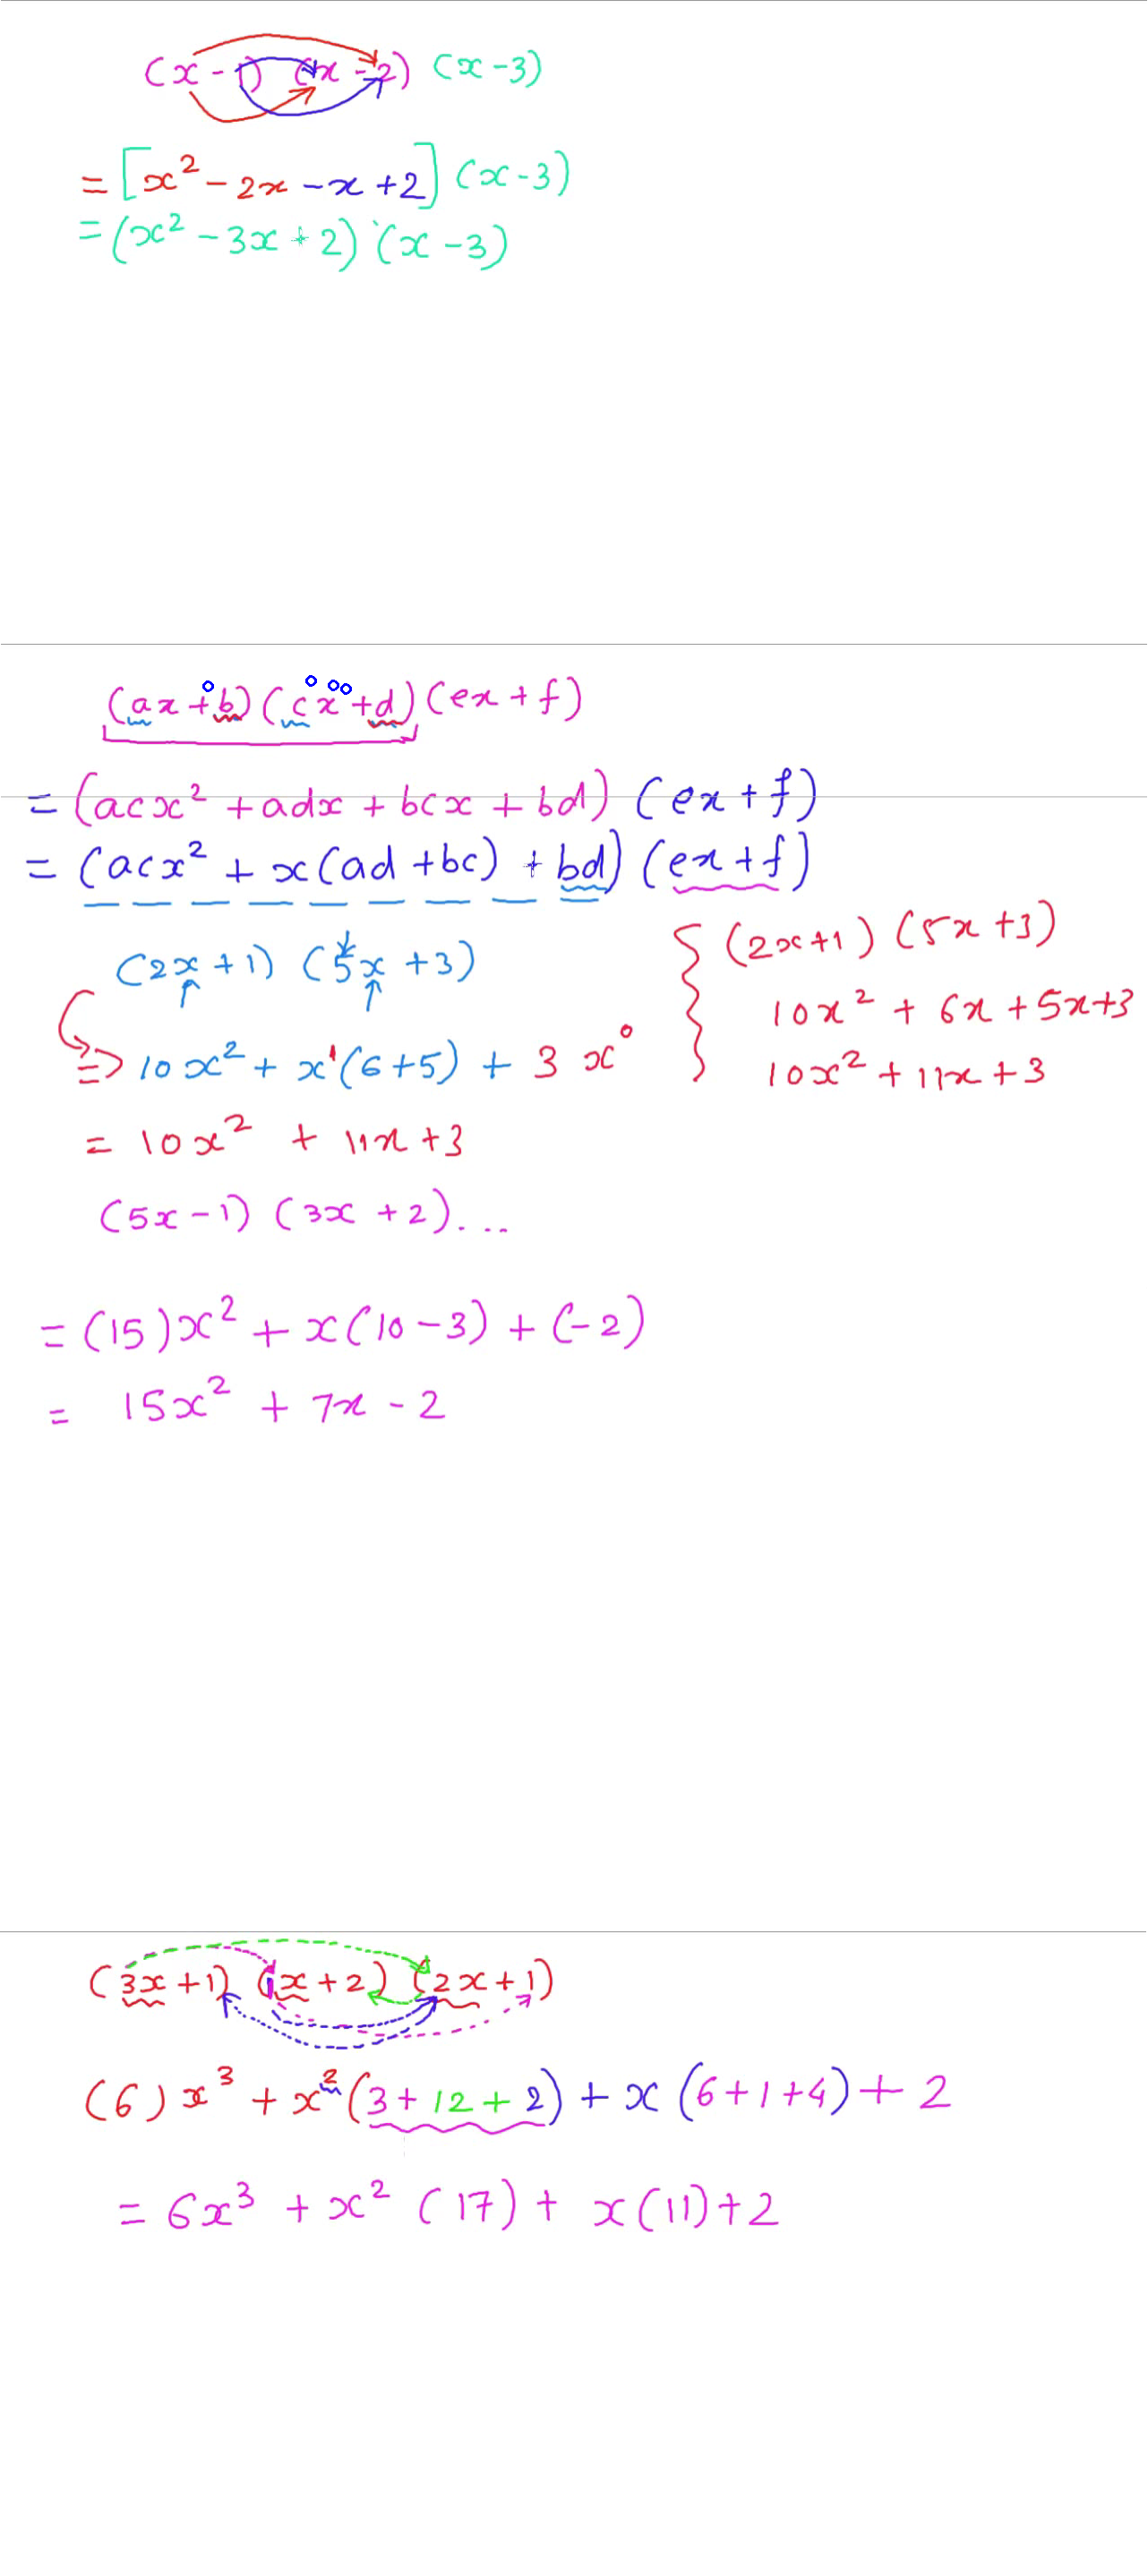 (x - 1) (x - 2) (x - 3)
= [x² - 2x - x + 2] (x - 3)
= (x² - 3x + 2) (x - 3)
(ax + b) (cx + d) (ex + f)
= (acx² + adx + bcx + bd) (ex + f)
= (acx² + x(ad + bc) + bd) (ex + f)
(2x + 1) (5x + 3)
=> 10x² + x¹(6 + 5) + 3x⁰
= 10x² + 11x + 3
{ (2x + 1) (5x + 3)
10x² + 6x + 5x + 3
10x² + 11x + 3
(5x - 1) (3x + 2)...
= (15)x² + x(10 - 3) + (-2)
= 15x² + 7x - 2
(3x + 1) (x + 2) (2x + 1)
(6)x³ + x²(3 + 12 + 2) + x(6 + 1 + 4) + 2
= 6x³ + x² (17) + x(11) + 2